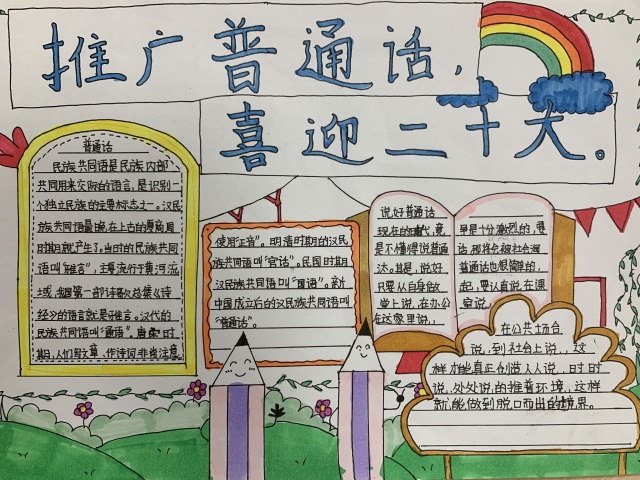 推广普通话,
喜迎二十大。
普通话
民族共同语是民族内部
共同用来交际的语言,是识别一
个独立民族的主要标志之一。汉民
族共同语最晚在上古的夏商周
时期就产生了。当时的民族共同
语叫“雅言”,主要流行于黄河流
域,我国第一部诗歌总集《诗
经》的语言就是雅言。汉代的
民族共同语叫“通语”。唐宋时
期,人们写文章、作诗词非常注意
使用“正音”。明清时期的汉民
族共同语叫“官话”。民国时期
汉民族共同语叫“国语”。新
中国成立后的汉民族共同语叫
“普通话”。
说好普通话
现在的竞
是不懂得说普通
达。其是,说好,
只要从自身做
堂上说,在办公
在这家里说,
早是十分激烈的,要
话,那将会被社会淘
普通话也很简单的,
起,要认真说,在课
室说
在公共场合
说,到社会上说,这
样才能真正创造人人说,时时
说,处处说的推普环境,这样
就能做到脱口而出的境界。